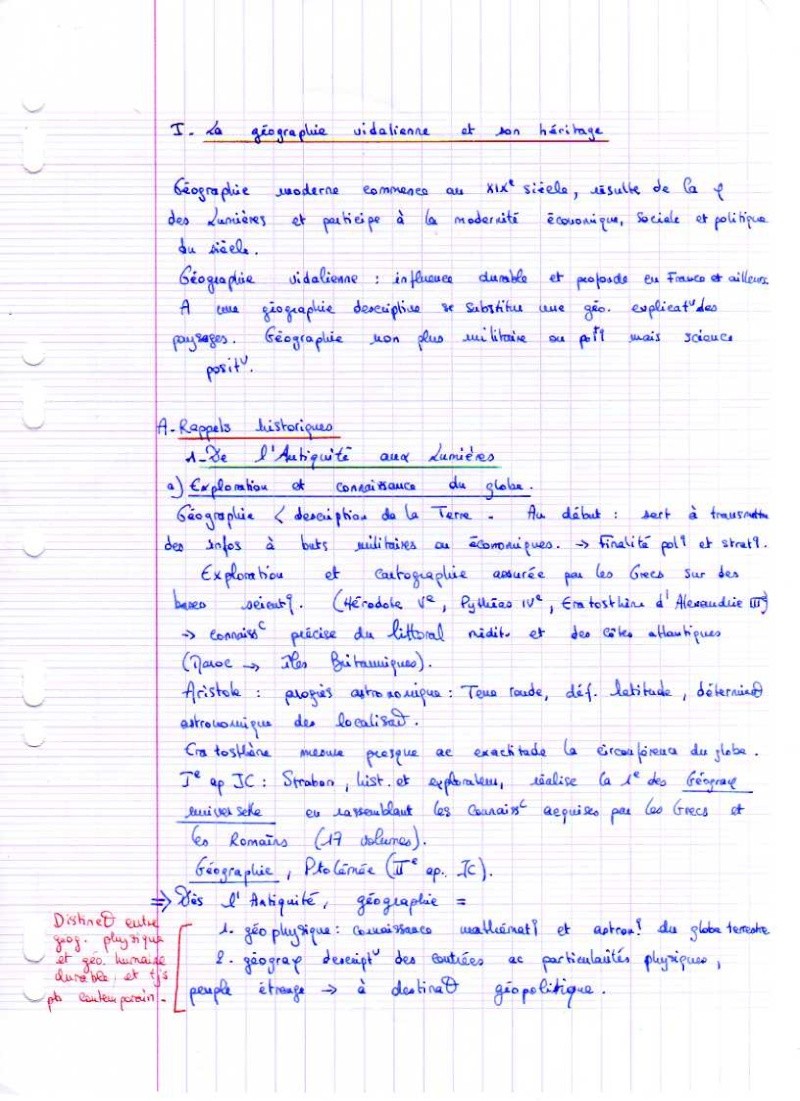 I. La géographie vidalienne et son héritage
Géographie moderne commence au XIXe siècle, résulte de la φ
des Lumières et participe à la modernité économique, sociale et politique
du siècle.
Géographie vidalienne : influence durable et profonde en France et ailleurs.
A une géographie descriptive se substitue une géo. explicatv des
paysages. Géographie non plus militaire ou polq mais science
positv.
A- Rappels historiques
1- De l'Antiquité aux Lumières
a) Exploration et connaissance du globe.
Géographie < description de la Terre. Au début : sert à transmettre
des infos à buts militaires ou économiques. → Finalité polq et stratq.
Exploration et cartographie assurée par les Grecs sur des
bases scientq. (Hérodote Ve, Pythéas IVe, Eratosthène d'Alexandrie IIIe)
→ connaissc précise du littoral médit. et des côtes atlantiques
(Maroc → îles Britanniques).
Aristote : progrès astronomique : Terre ronde, déf. latitude, déterminat°
astronomique des localisat°.
Eratosthène mesure presque ac exactitude la circonférence du globe.
Ie ap JC : Strabon, hist. et explorateur, réalise la 1e des Géograφ
universelle en rassemblant les connaissc acquises par les Grecs et
les Romains (17 volumes).
Géographie, Ptolémée (IIe ap. JC).
⇒ Dès l'Antiquité, géographie =
1. géo physique : connaissance mathématq et astronq du globe terrestre
2. géograφ descriptv des contrées ac particularités physiques,
peuple étrange → à destinat° géopolitique.
Distinct° entre
géog. physique
et géo. humaine
durable, et tjs
pb contemporain.